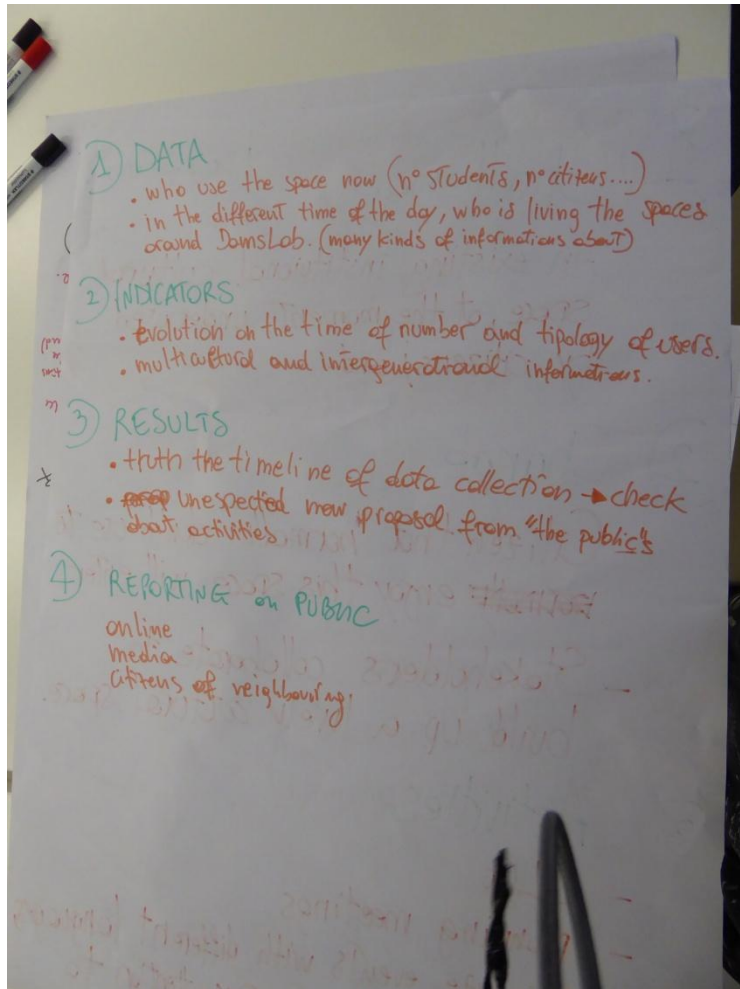 1 DATA
• who use the space now (n° students, n° citizens....)
• in the different time of the day, who is living the spaces
around DamsLab. (many kinds of informations about)
2 INDICATORS
• evolution on the time of number and tipology of users.
• multicultural and intergenerational informations.
3 RESULTS
• truth the timeline of data collection → check
• unespected new proposal from "the public"s
about activities
4 REPORTING on PUBLIC
online
media
citizens of neighbouring.